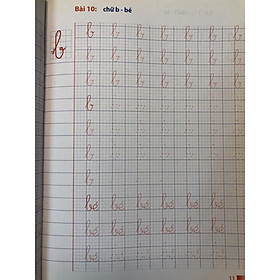 Bài 10: chữ b - bé
b
b b b b b b b
b b b b b b b
b b b b b b b
b
b
b
b
b
b
bé bé bé bé bé bé
bé bé bé bé bé bé
bé bé bé bé bé bé
bé
11